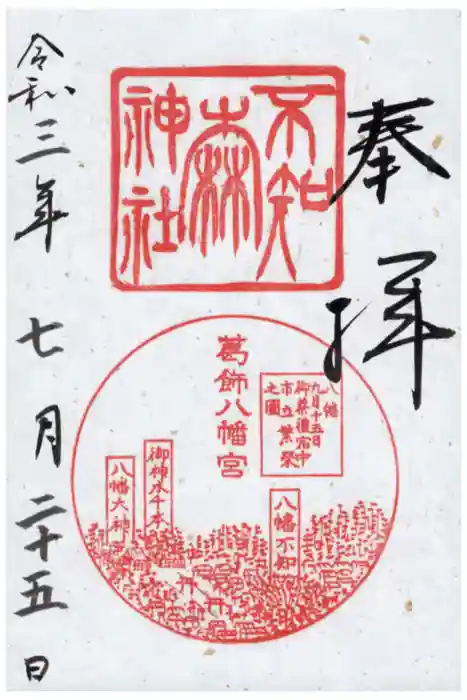 奉拝
不知
森
神社
葛飾八幡宮
八幡
九月十五日
御祭禮宮中
市立繁榮
之圖
八幡不知
御神木千本
八幡大神
令和三年七月二十五日